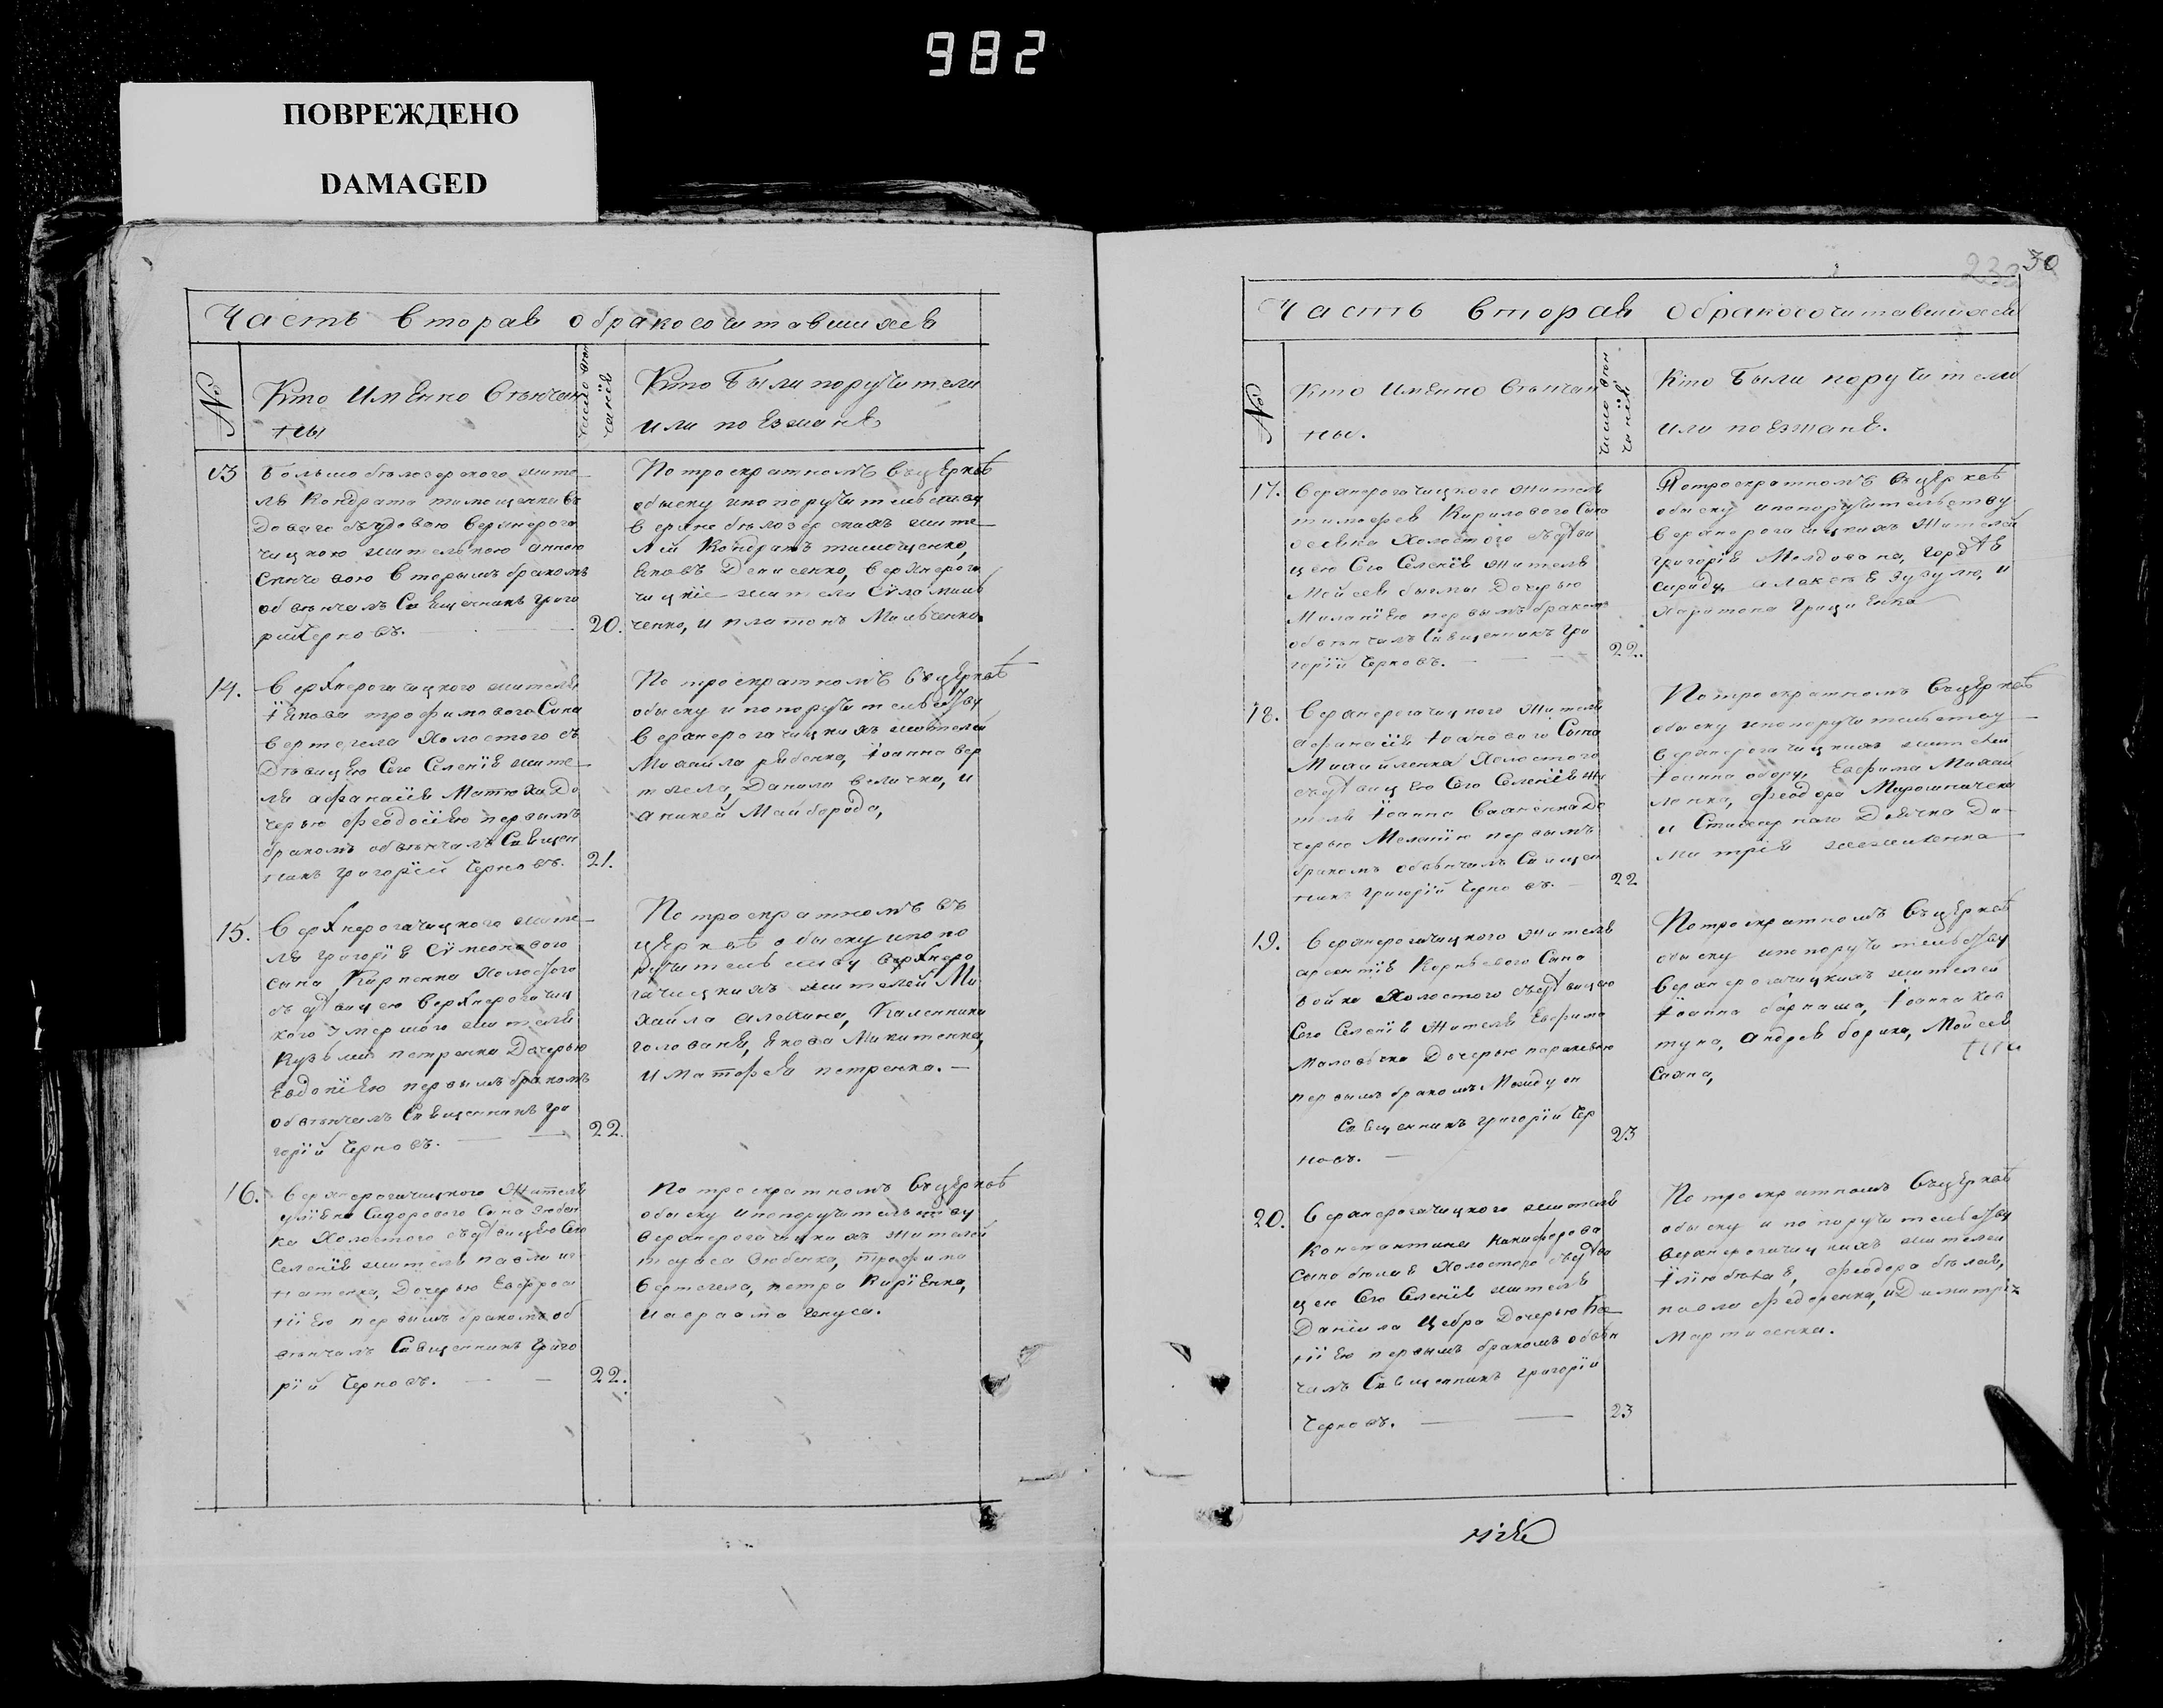 982
ПОВРЕЖДЕНО
DAMAGED
Часть вторая о бракосочитавшихся
№
Кто именно венчан
ны
число вен
чанїя
Кто были поручители
или поезжанѣ
13
Большобѣлозерского жите
ля Кондрата тимощенка в
доваго съ удовою верхнерога
чицкою жителькою анною
вторымъ бракомъ
обвѣнчалъ Священникъ григо
рий Черновъ.
20.
По троекратномъ въ церквѣ
обыску и по поручительству
верхнебѣлозерскихъ жите
лей Кондратъ тимощенко,
Яковъ Денисенко, верхнерога
чицкїе жители
ченко, и платонъ
14.
Верхнерогачицкого жителя
Їакова трофимового Сина
вертегела Холостого съ
Дѣвицею Сего Селенїя жите
ля афанасїя Матюха До
черью феодосїею первымъ
бракомъ обвѣнчалъ Священ
никъ григорїй Черновъ.
21.
По троекратномъ въ церквѣ
обыску и по поручительству
верхнерогачицкихъ жителей
Михайла рябенка, Їоанна вер
тегела, Данила величка, и
аникей Майборода,
15.
Верхнерогачицкого жите
ля григорїя Сүмеонового
сина, Карпенка Холостого
съ дѣвицею верхнерогачиц
кого умершого жителя
Кузьмы петренка Дочерью
Евдокїею первымъ бракомъ
обвѣнчалъ Священникъ гри
горїй Черновъ.
22.
По троекратномъ въ
церквѣ обыску и по по
ручительству верхнеро
гачицкихъ жителей Ми
хайла алехина, Каленника
голованя, якова Микитенка,
и матфея петренка.
16.
Верхнерогачицкого жителя
улїяна Сидорового Сина зюбен
ка Холостого съ дѣвицею Сего
Селенїя жителя павла иг
натенка, Дочерью Евфроси
нїею первымъ бракомъ об
вѣнчалъ Священникъ григо
рїй Черновъ.
22.
По троекратномъ въ церквѣ
обыску и по поручительству
верхнерогачицкихъ жителей
тараса зюбенка, трофима
вертегела, петра Кирїенка,
и авраама
230
30
Часть вторая о бракосочитавшихся
№
Кто именно венчан
ны.
число вен
чанїя
Кто были поручители
или поезжанѣ.
17.
Верхнерогачицкого жителя
тимофея Кирилового Сина
Холостого съ дѣви
цею Сего Селенїя жителя
Мойсея Дочерью
Маланїею первымъ бракомъ
обвѣнчалъ Священникъ гри
горїй Черновъ.
22.
По троекратномъ въ церквѣ
обыску и по поручительству
верхнерогачицкихъ жителей
григорїя Молдована, гордѣя
алексѣя зузулю, и
харитона гриценка
18.
Верхнерогачицкого жителя
афанасїя Їоанового Сына
Михайленка Холостого
съ дѣвицею Сего Селенїя жи
теля Їоанна До
черью Меланїю первымъ
бракомъ обвѣнчалъ Священ
никъ григорїй Черновъ.
22
По троекратномъ въ церквѣ
обыску и по поручительству
верхнерогачицкихъ жителей
Їоанна Евфима Михай
ленка, феодора Мирошниченка
и Дячка Ди
митрїя
19.
Верхнерогачицкого жителя
арсентїя Корнѣевого Сина
бойка Холостого съ дѣвицею
Сего Селенїя жителя Евфима
Маловичка Дочерью параскевою
первымъ бракомъ
Священникъ григорїй Чер
новъ.
23
По троекратномъ въ церквѣ
обыску и по поручительству
верхнерогачицкихъ жителей
Їоанна барнаша, Їоанна ков
туна, андрея борика, Мойсея
20.
Верхнерогачицкого жителя
Константина Никифорова
Сына бѣлая Холостого съ дѣви
цею Сего Селенїя жителя
Данїила Цебра Дочерью
нїею первымъ бракомъ обвѣн
чалъ Священникъ григорїй
Черновъ.
23
По троекратномъ въ церквѣ
обыску и по поручительству
верхнерогачицкихъ жителей
Їлїи бѣлая, феодора бѣлая,
павла федоренка, и Димитрїя
Мартиненка.